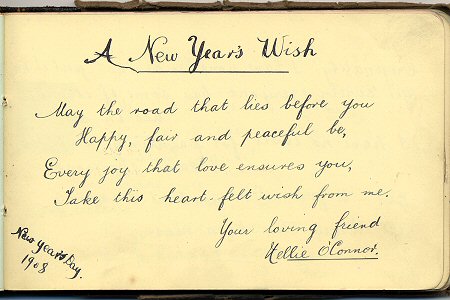 A New Year's Wish
May the road that lies before you
Happy, fair and peaceful be,
Every joy that love ensures you,
Take this heart-felt wish from me.
Your loving friend
Nellie O'Connor.
New Year's Day.
1908